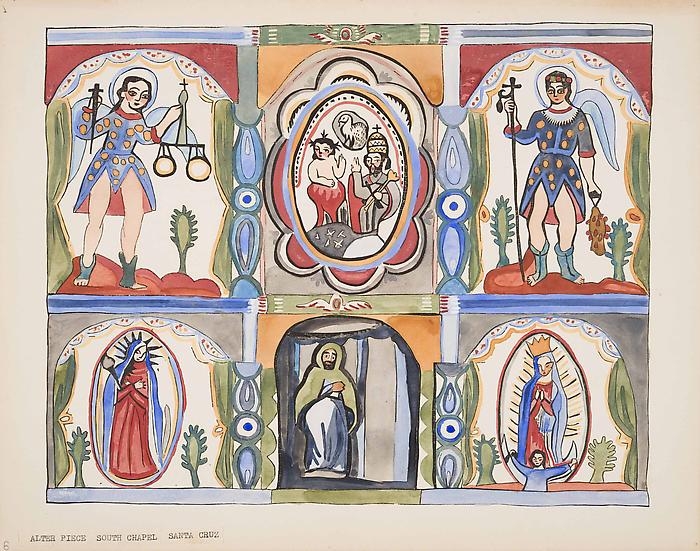 ALTER PIECE SOUTH CHAPEL SANTA CRUZ
6